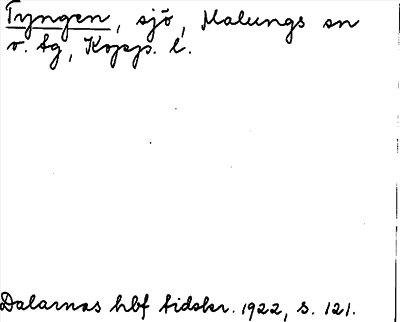 Tyngen, sjö, Malungs sn
v. tg, Kopp. l.
Dalarnas hbf tidskr. 1922, s. 121.